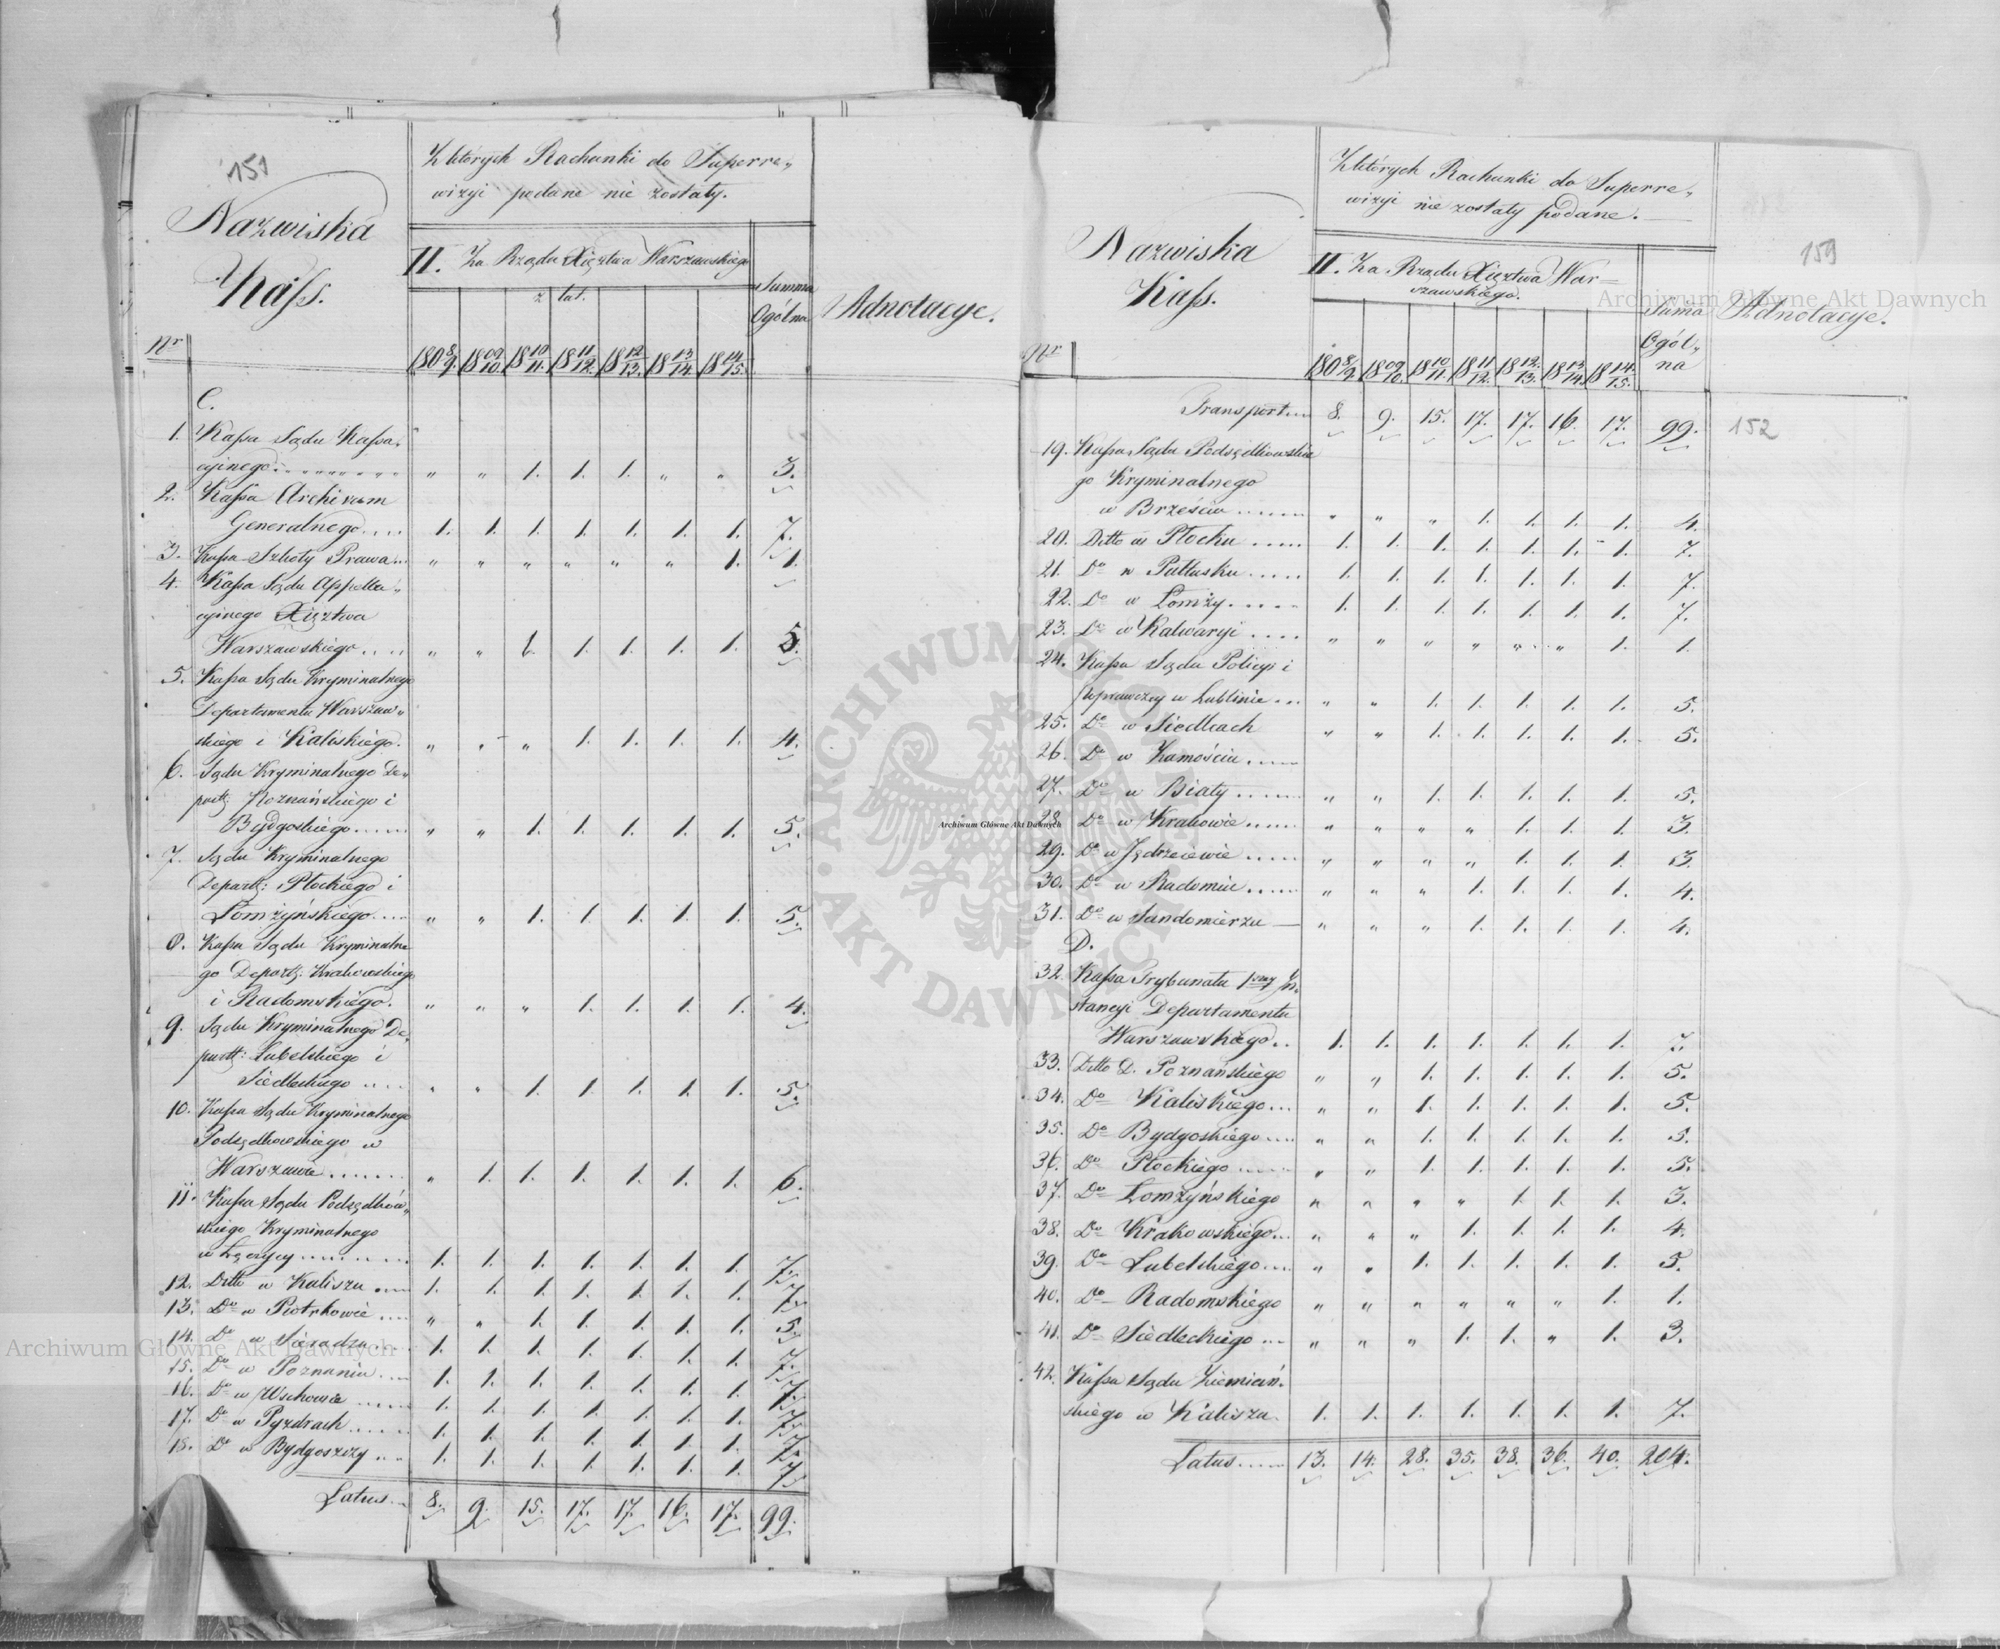 151
Nazwiska
Kass.
Nr
Z których Rachunki do Superre„
wizyi podane nie zostały.
II. Za Rządu Xięztwa Warszawskiego
z lat.
Summa
Ogólna
Adnotacye.
180 8/9. 18 09/10. 18 10/11. 18 11/12. 18 12/13. 18 13/14. 18 14/15.
C.
1. Kassa Sądu Kassa„
cyinego „ „ 1. 1. 1. „ „ 3.
2. Kassa Archivum
Generalnego.... 1. 1. 1. 1. 1. 1. 1. 7.
3. Kassa Szkoły Prawa... „ „ „ „ „ „ 1. 1.
4. Kassa Sądu Appella„
cyinego Xięztwa
Warszawskiego.... „ „ 1. 1. 1. 1. 1. 5.
5. Kassa Sądu Kryminalnego
Departamentu Warszaw„
skiego i Kaliskiego. „ „ „ 1. 1. 1. 1. 4.
6. Sądu Kryminalnego De„
partt: Poznańskiego i
Bydgoskiego...... „ „ 1. 1. 1. 1. 1. 5.
7. Sądu Kryminalnego
Departt: Płockiego i
Łomżyńskiego.... „ „ 1. 1. 1. 1. 1. 5.
8. Kassa Sądu Kryminalne
go Departt: Krakowskiego
i Radomskiego. „ „ „ 1. 1. 1. 1. 4.
9. Sądu Kryminalnego De„
partt: Lubelskiego i
Siedleckiego .... „ „ 1. 1. 1. 1. 1. 5.
10. Kassa Sądu Kryminalnego
Podsędkowskiego w
Warszawie....... „ 1. 1. 1. 1. 1. 1. 6.
11. Kassa Sądu Podsędków„
skiego Kryminalnego
w Łęczycy......... 1. 1. 1. 1. 1. 1. 1. 7.
12. Ditto w Kaliszu .... 1. 1. 1. 1. 1. 1. 1. 7.
13. Do w Piotrkowie .... „ „ 1. 1. 1. 1. 1. 5.
14. Do w Sieradzu.... 1. 1. 1. 1. 1. 1. 1. 7.
15. Do w Poznaniu.... 1. 1. 1. 1. 1. 1. 1. 7.
16. Do w Wschowie ..... 1. 1. 1. 1. 1. 1. 1. 7.
17. Do w Pyzdrach...... 1. 1. 1. 1. 1. 1. 1. 7.
18. Do w Bydgoszczy ... 1. 1. 1. 1. 1. 1. 1. 7.
Latus... 8. 9. 15. 17. 17. 16. 17. 99.
Nazwiska
Kass.
Nr
Z których Rachunki do Superre„
wizyi nie zostały podane.
II. Za Rządu Xięztwa War=
szawskiego.
Suma
Ogól„
na
159
Adnotacye.
180 8/9 18 09/10. 18 10/11. 18 11/12. 18 12/13. 18 13/14. 18 14/15.
Transport.... 8. 9. 15. 17. 17. 16. 17. 99.
152
19. Kassa Sądu Podsędkowskie
go Kryminalnego
w Brześciu ...... „ „ „ 1. 1. 1. 1. 4.
20. Ditto w Płocku ..... 1. 1. 1. 1. 1. 1. 1. 7.
21. Do w Pułtusku ..... 1. 1. 1. 1. 1. 1. 1. 7.
22. Do w Łomży..... 1. 1. 1. 1. 1. 1. 1. 7.
23. Do w Kalwaryi .... „ „ „ „ „ „ 1. 1.
24. Kassa Sądu Policyi i
Poprawczey w Lublinie ... „ „ 1. 1. 1. 1. 1. 5.
25. Do w Siedlcach „ „ 1. 1. 1. 1. 1. 5.
26. Do w Zamościu ......
27. Do w Biały ...... „ „ 1. 1. 1. 1. 1. 5.
28. Do w Krakowie...... „ „ „ „ 1. 1. 1. 3.
29. Do w Jędrzeiewie ..... „ „ „ „ 1. 1. 1. 3.
30. Do w Radomiu ..... „ „ „ 1. 1. 1. 1. 4.
31. Do w Sandomierzu — „ „ „ 1. 1. 1. 1. 4.
D.
32. Kassa Trybunału 1szey In„
stancyi Departamentu
Warszawskiego.. 1. 1. 1. 1. 1. 1. 1. 7.
33. Ditto D. Poznańskiego „ „ 1. 1. 1. 1. 1. 5.
34. Do Kaliskiego... „ „ 1. 1. 1. 1. 1. 5.
35. Do Bydgoskiego.... „ „ 1. 1. 1. 1. 1. 5.
36. Do Płockiego ..... „ „ 1. 1. 1. 1. 1. 5.
37. Do Łomżyńskiego „ „ „ „ 1. 1. 1. 3.
38. Do Krakowskiego... „ „ „ 1. 1. 1. 1. 4.
39. Do Lubelskiego.... „ „ 1. 1. 1. 1. 1. 5.
40. Do Radomskiego „ „ „ „ „ „ 1. 1.
41. Do Siedleckiego ... „ „ „ 1. 1. „ 1. 3.
42. Kassa Sądu Ziemiań„
skiego w Kaliszu. 1. 1. 1. 1. 1. 1. 1. 7.
Latus..... 13. 14. 28. 35. 38. 36. 40. 204.
Archiwum Główne Akt Dawnych
Archiwum Główne Akt Dawnych
Archiwum Główne Akt Dawnych
ARCHIWUM GŁÓWNE AKT DAWNYCH